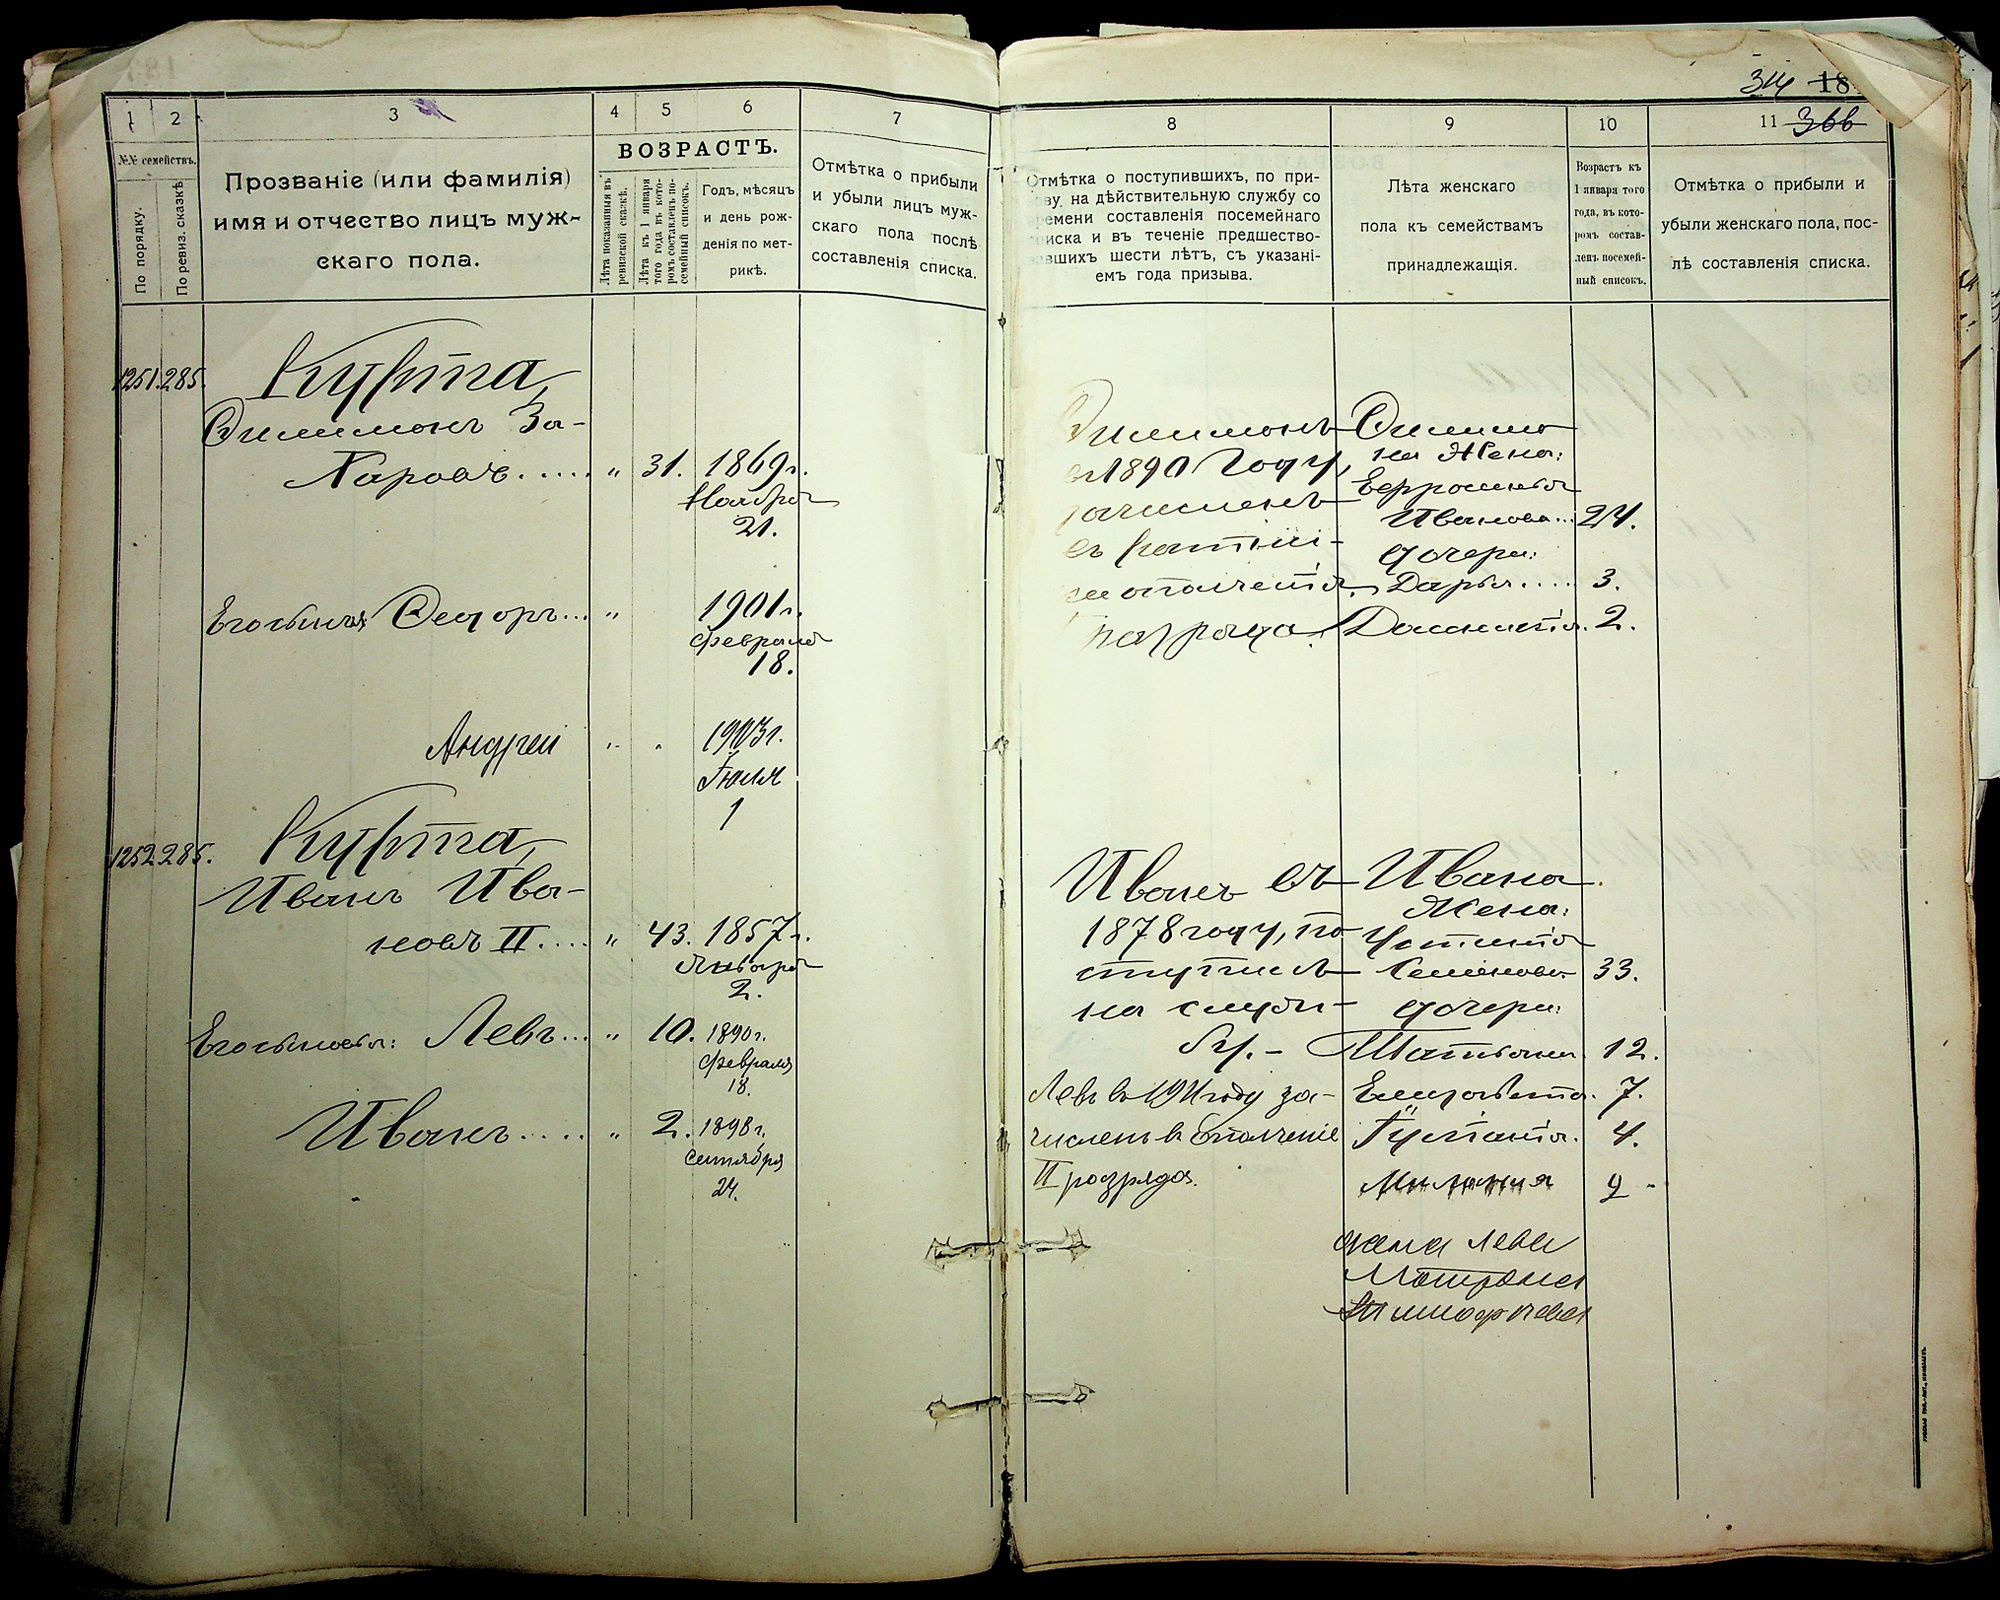 314 18
366
1 2 3 4 5 6 7
№№ семействъ.
По порядку.
По ревиз. сказкѣ
Прозваніе (или фамилія)
имя и отчество лицъ муж-
скаго пола.
ВОЗРАСТЪ.
Лѣта показанныя въ
ревизской сказкѣ.
Лѣта къ 1 января
того года въ кото-
ромъ составленъ по-
семейный списокъ.
Годъ, мѣсяцъ
и день рож-
денія по мет-
рикѣ.
Отмѣтка о прибыли
и убыли лицъ муж-
скаго пола послѣ
составленія списка.
1251. 285. Курта,
Филимонъ За-
харовъ..... " 31. 1869 г.
Ноября
21.
Его сынъ Федоръ... " 1901 г.
Февраля
18.
Андрей " " 1903 г.
Іюля
1
1252 285. Курта,
Иванъ Ива-
новъ II.... " 43. 1857 г.
Января
2.
Его сыновья: Левъ... " 10. 1890 г.
Февраля
18.
Иванъ..... " 2. 1898 г.
Сентября
24.
8 9 10 11
Отмѣтка о поступившихъ, по при-
ву, на дѣйствительную службу со
ремени составленія посемейнаго
иска и въ теченіе предшество-
вшихъ шести лѣтъ, съ указані-
емъ года призыва.
Лѣта женскаго
пола къ семействамъ
принадлежащія.
Возрастъ къ
1 января того
года, въ кото-
ромъ состав-
ленъ посемей-
ный списокъ.
Отмѣтка о прибыли и
убыли женскаго пола, пос-
лѣ составленія списка.
Филимонъ
въ 1890 году,
зачисленъ
въ ратни-
ки ополченія
разряда.
Филимо
на Жена:
Ефросинья
Иванова... 24.
дочери:
Дарья.... 3.
2.
Иванъ въ
1878 году, по
ступилъ
на служ-
бу.-
Левъ въ 1911 году за-
численъ въ ополченіе
II разряда.
Ивана
Жена:
Устинія
Семенова 33.
дочери:
Татьяна. 12.
Елизавета. 7.
4.
Миланія 2 -
жена Лева
Матрона
Тимофѣева